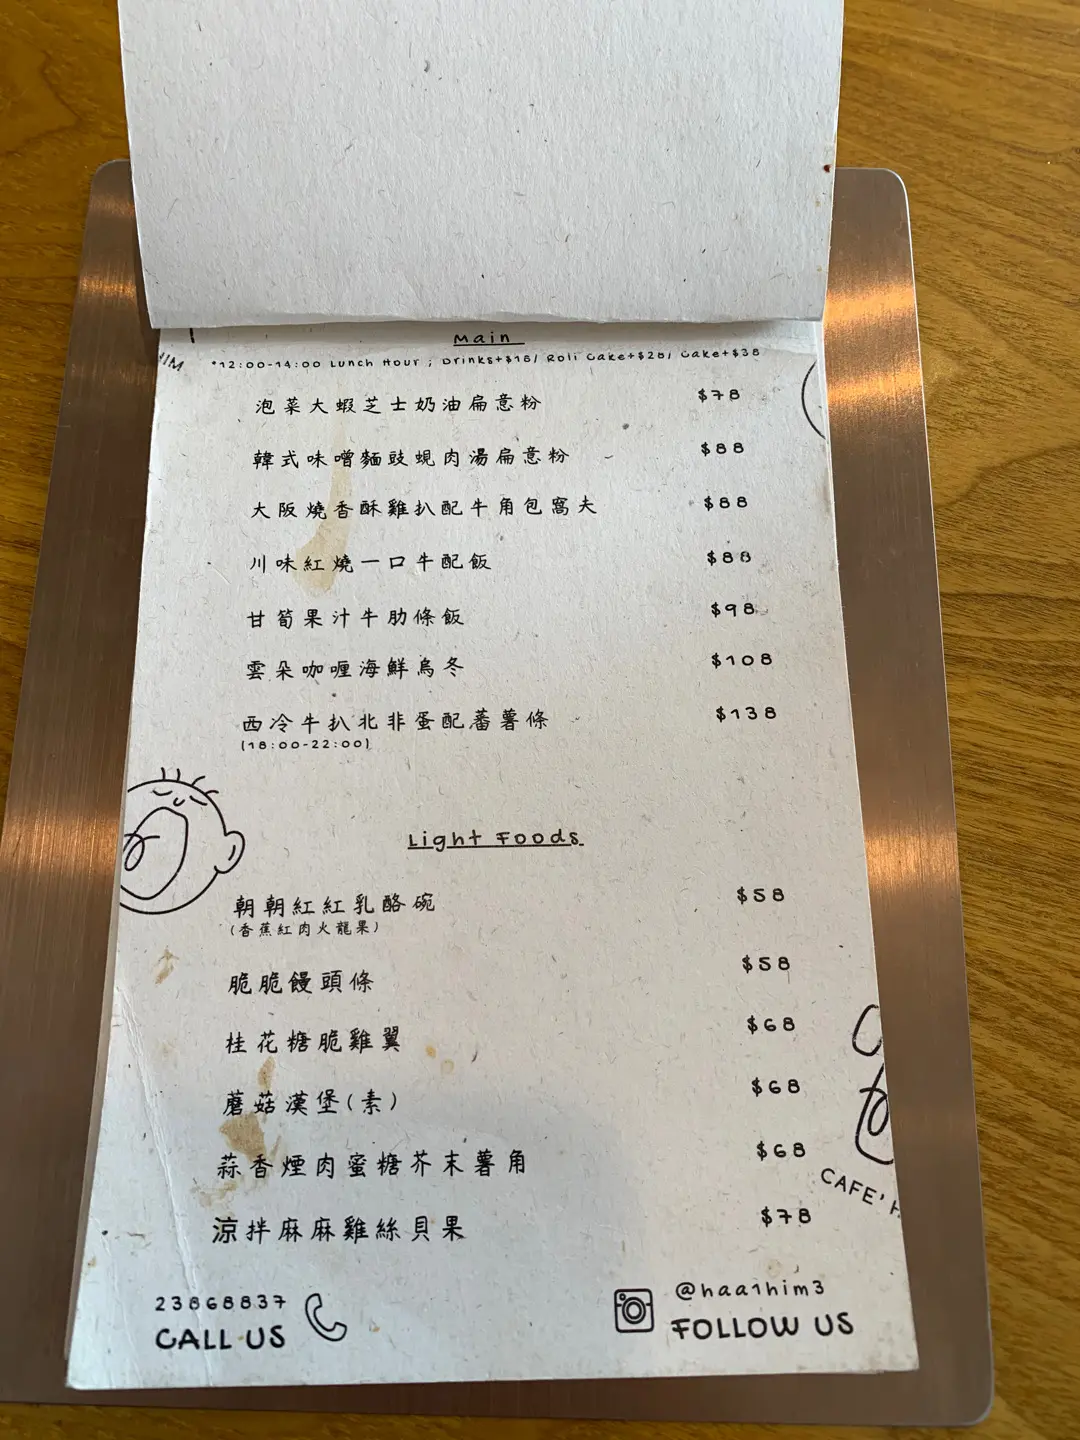 Main
*12:00-14:00 Lunch Hour ; Drinks+$18/ Roll Cake+$28/ Cake+$38
泡菜大蝦芝士奶油扁意粉 $78
韓式味噌麵豉蜆肉湯扁意粉 $88
大阪燒香酥雞扒配牛角包窩夫 $88
川味紅燒一口牛配飯 $88
甘筍果汁牛肋條飯 $98
雲朵咖喱海鮮烏冬 $108
西冷牛扒北非蛋配蕃薯條 $138
(18:00-22:00)
Light Foods
朝朝紅紅乳酪碗 $58
(香蕉紅肉火龍果)
脆脆饅頭條 $58
桂花糖脆雞翼 $68
蘑菇漢堡(素) $68
蒜香煙肉蜜糖芥末薯角 $68
CAFE'
涼拌麻麻雞絲貝果 $78
23868837
CALL US
@haa1him3
FOLLOW US